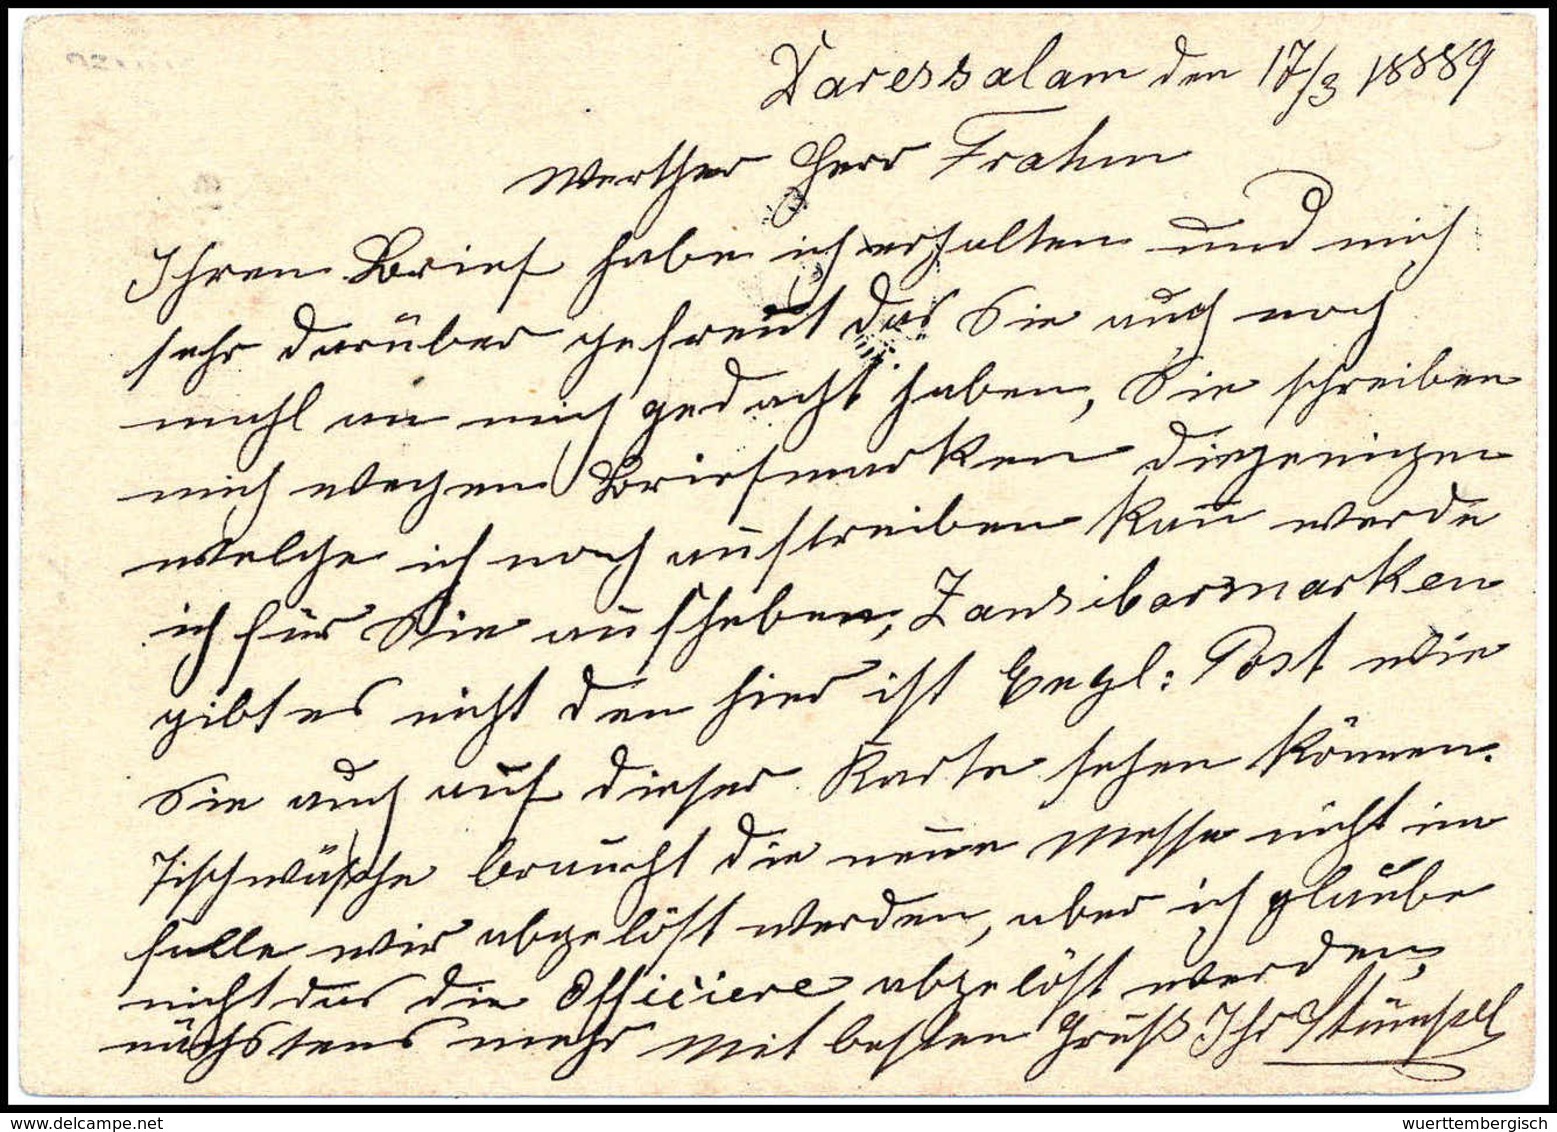 Daressalam den 17/3 18889
Werther Herr Frahm
Ihren Brief habe ich erhalten und mich
sehr darüber gefreut das Sie auch noch
mahl an mich gedacht haben, Sie schreiben
mich wegen Briefmarken diejenigen
welche ich noch auftreiben kan werde
ich für Sie aufheben, Zansibarmarken
gibt es nicht den hier ist Engl: Post wie
Sie auch auf dieser Karte sehen können.
Tischwäsche braucht die neue Messe nicht im
falle wir abgelöst werden, aber ich glaube
nicht das die Officiere abgelöst werden,
nächstens mehr Mit besten Gruß Ihr
www.delcampe.net
wuerttembergisch